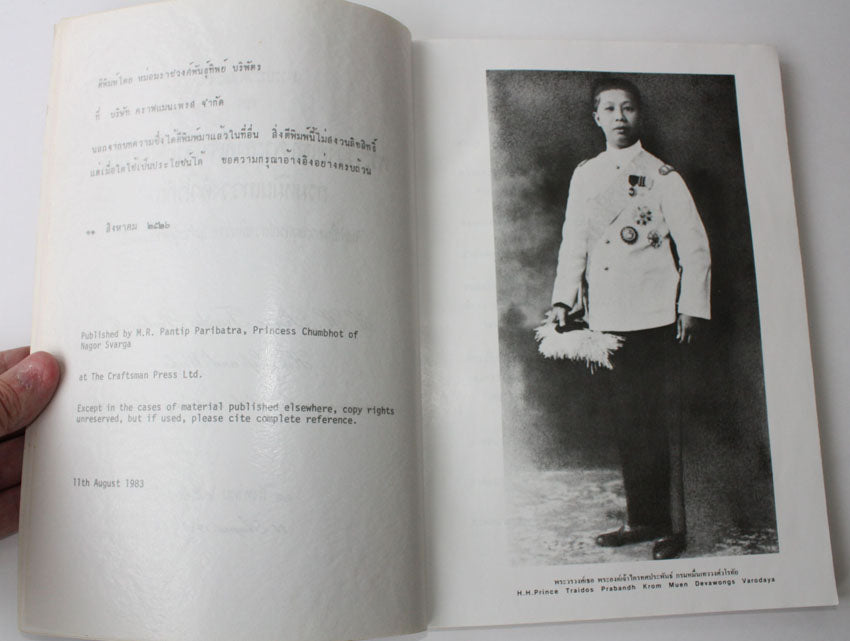 ตีพิมพ์โดย หม่อมราชวงศ์พันธุ์ทิพย์ บริพัตร
ที่ บริษัท คราฟแมนเพรส จำกัด
นอกจากบทความซึ่งได้ตีพิมพ์มาแล้วในที่อื่น สิ่งตีพิมพ์นี้ไม่สงวนลิขสิทธิ์
แต่เมื่อใดใช้เป็นประโยชน์ได้ ขอความกรุณาอ้างอิงอย่างครบถ้วน
๑๑ สิงหาคม ๒๕๒๖
Published by M.R. Pantip Paribatra, Princess Chumbhot of
Nagor Svarga
at The Craftsman Press Ltd.
Except in the cases of material published elsewhere, copy rights
unreserved, but if used, please cite complete reference.
11th August 1983
พระวรวงศ์เธอ พระองค์เจ้าไตรทศประพันธ์ กรมหมื่นเทววงศ์วโรทัย
H.H.Prince Traidos Prabandh Krom Muen Devawongs Varodaya